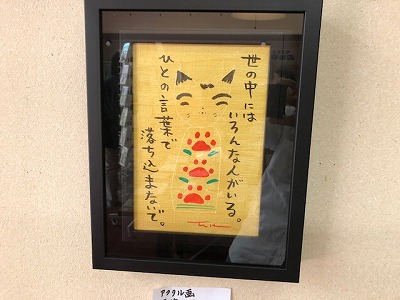 世の中には
いろんな人がいる。
ひとの言葉で
落ち込まないで。
アクリル画